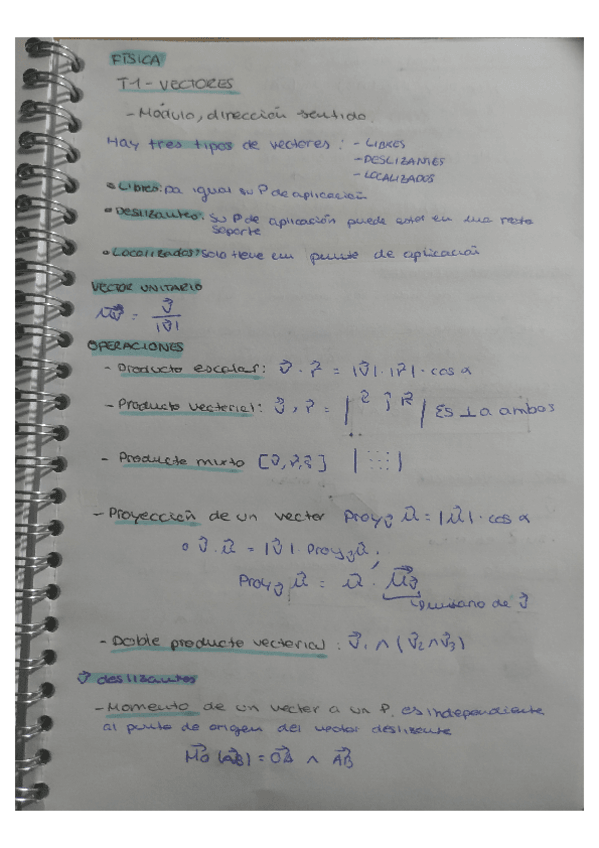 FÍSICA
T-1 - VECTORES
- Módulo, dirección sentido.
Hay tres tipos de vectores : - LIBRES
- DESLIZANTES
- LOCALIZADOS
• Libres: da igual su P de aplicación
• Deslizantes: su P de aplicación puede estar en una recta
soporte
• Localizados: solo tiene un punto de aplicación
VECTOR UNITARIO
u⃗v⃗ = v⃗ / |v⃗|
OPERACIONES
- Producto escalar: v⃗ · r⃗ = |v⃗| · |r⃗| · cos α
- Producto vectorial: v⃗ , r⃗ = | i⃗ j⃗ k⃗ | Es ⊥ a ambos
- Producto mixto [v⃗, r⃗, ] | ::: |
- Proyección de un vector Proy v⃗ u⃗ = |u⃗| · cos α
o v⃗ · u⃗ = |v⃗| · Proy v⃗ u⃗ ;
Proy v⃗ u⃗ = u⃗ · u⃗v⃗
↳ unitario de v⃗
- Doble producto vectorial : v⃗₁ ∧ (v⃗₂ ∧ v⃗₃)
v⃗ deslizantes
- Momento de un vector a un P. es independiente
al punto de origen del vector deslizante
M⃗o (A⃗B) = O⃗A ∧ A⃗B